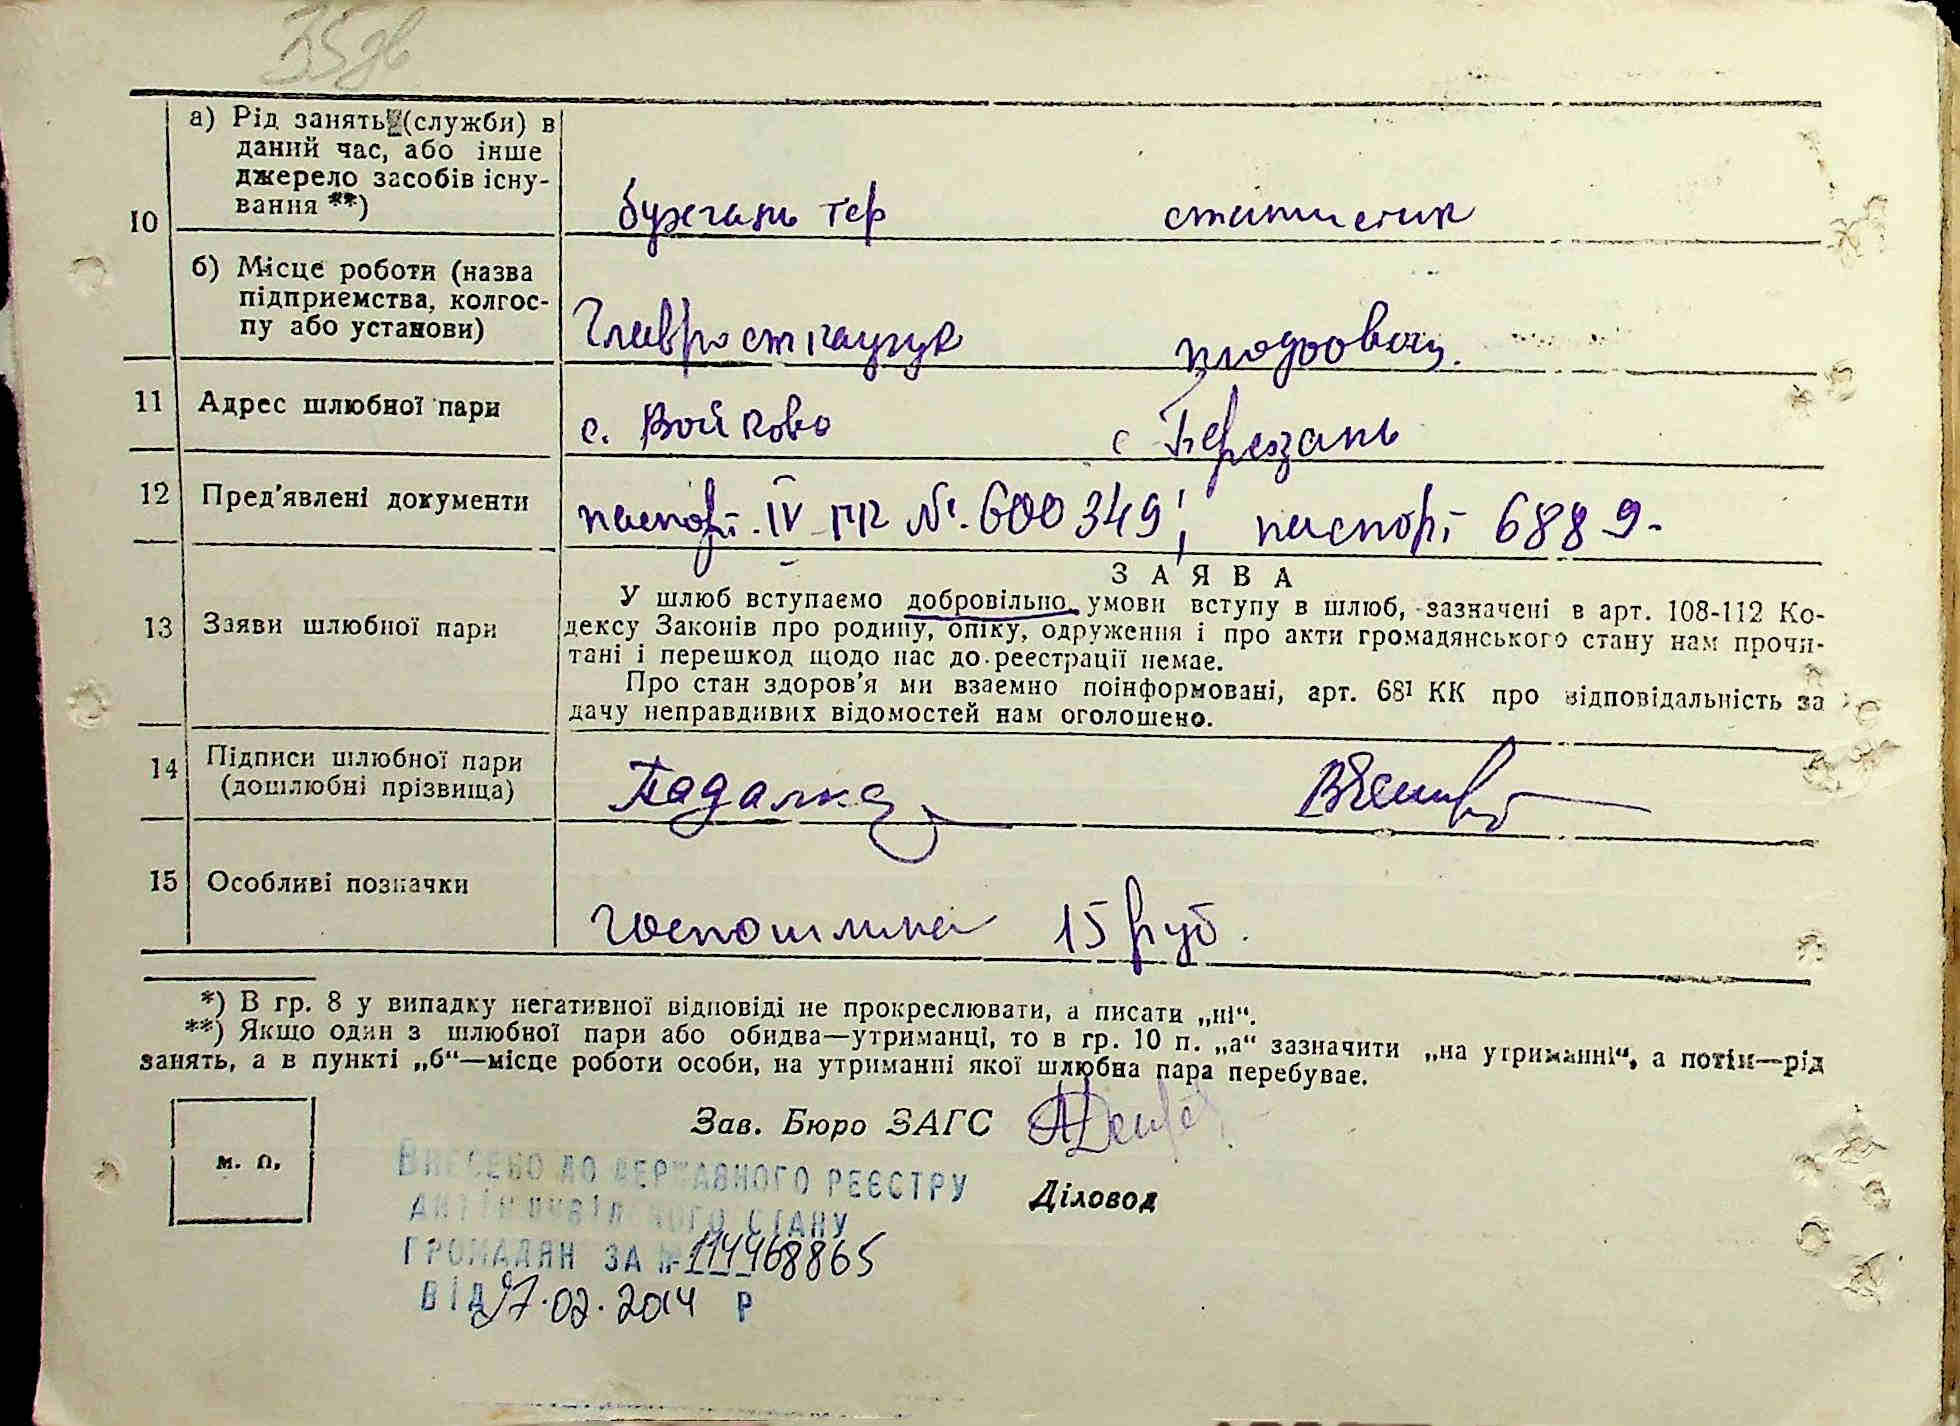 35 зв
а) Рід занять (служби) в
даний час, або інше
джерело засобів існу-
вання **)
10
бухгалтер статистик
б) Місце роботи (назва
підприємства, колгос-
пу або установи)
плодоовощ.
11 Адрес шлюбної пари
с. Войково с Березань
12 Пред'явлені документи
паспорт IV № 600349; паспорт 6889-
ЗАЯВА
13 Заяви шлюбної пари
У шлюб вступаємо добровільно, умови вступу в шлюб, зазначені в арт. 108-112 Ко-
дексу Законів про родину, опіку, одруження і про акти громадянського стану нам прочи-
тані і перешкод щодо нас до реєстрації немає.
Про стан здоров'я ми взаємно поінформовані, арт. 68¹ КК про відповідальність за
дачу неправдивих відомостей нам оголошено.
14 Підписи шлюбної пари
(дошлюбні прізвища)
Падалка
15 Особливі позначки
Госпошлина 15 руб.
*) В гр. 8 у випадку негативної відповіді не прокреслювати, а писати „ні“.
**) Якщо один з шлюбної пари або обидва—утриманці, то в гр. 10 п. „а“ зазначити „на утриманні“, а потім—рід
занять, а в пункті „б“—місце роботи особи, на утриманні якої шлюбна пара перебуває.
Зав. Бюро ЗАГС
м. п.
ВНЕСЕНО ДО ДЕРЖАВНОГО РЕЄСТРУ
Діловод
АКТІВ ЦИВІЛЬНОГО СТАНУ
ГРОМАДЯН ЗА № 114468865
ВІД 27.02.2014 Р